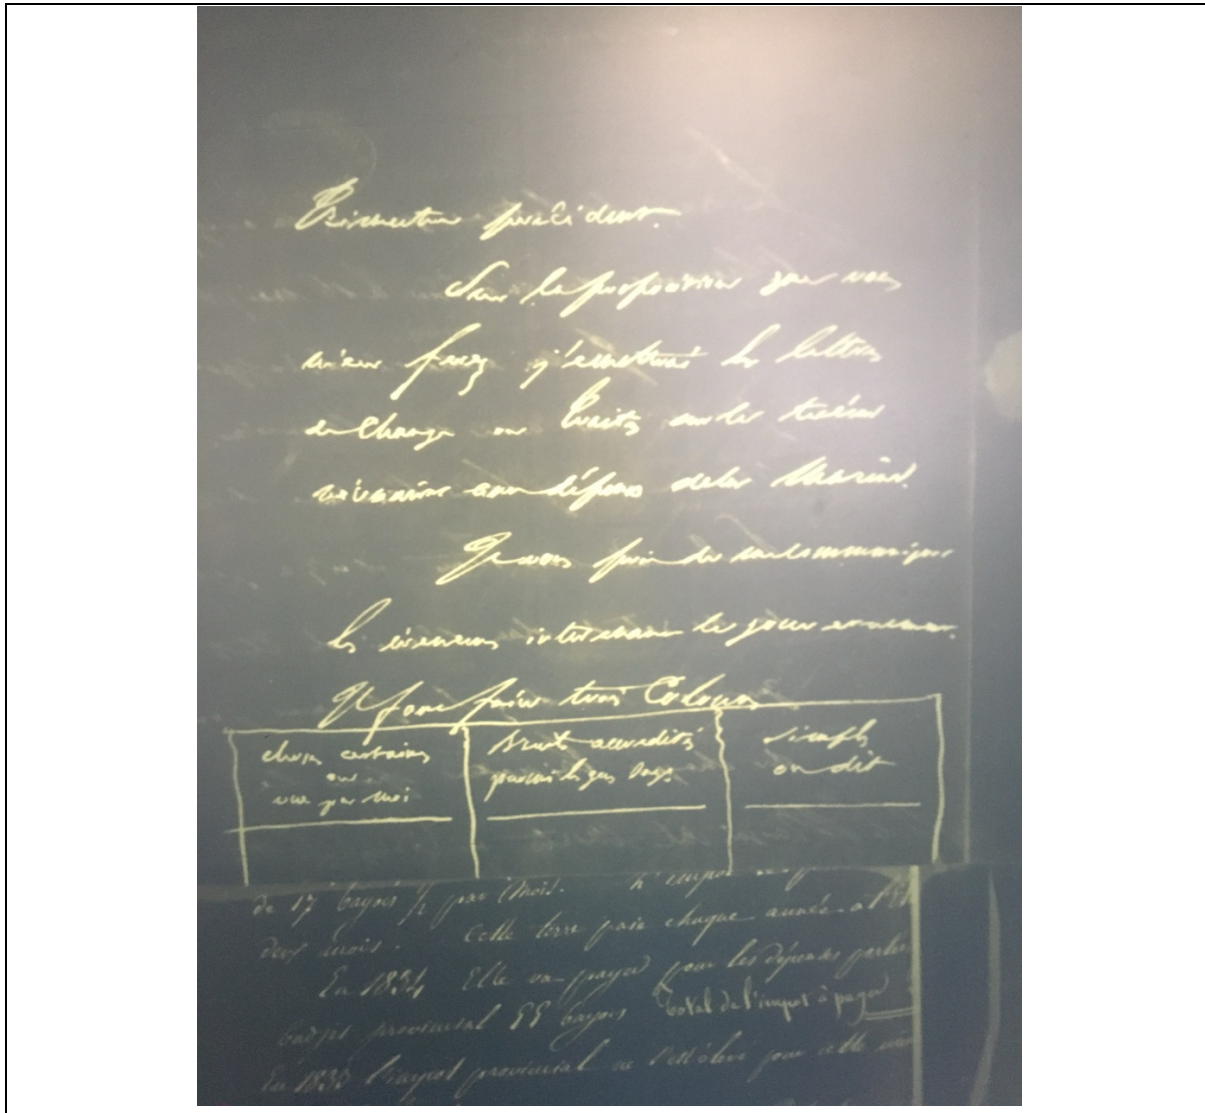 trimestre précédent.
Sur la proposition que vous
m'en ferez j'émettrai les lettres
de change ou traites sur le trésor
nécessaires aux dépenses de la Marine.
Je vous prie de me communiquer
les intervenant le jour
Il faut faire trois Colonnes
choses certaines
ou
vue par moi
Bruits accrédités
parmi les gens
simples
on dit
de 17 bayois ½ par mois. L'impot
deux mois. Cette terre paie chaque année à l'
En 1834 Elle va payer pour les dépenses
provincial 55 bayois total de l'impot à payer
En 1833 l'impot provincial ne s'est élevé pour cette